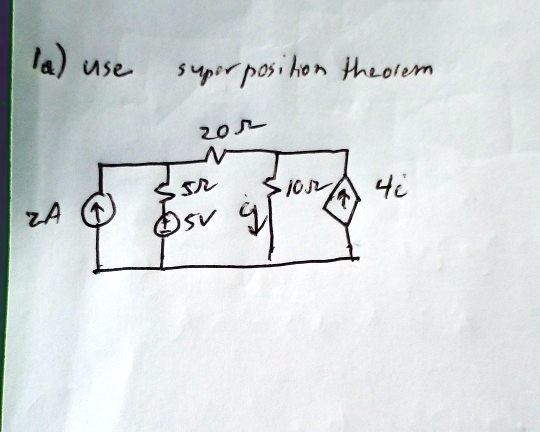 1a) use superposition theorem
20Ω
5Ω
10Ω
4i
2A
5V
i